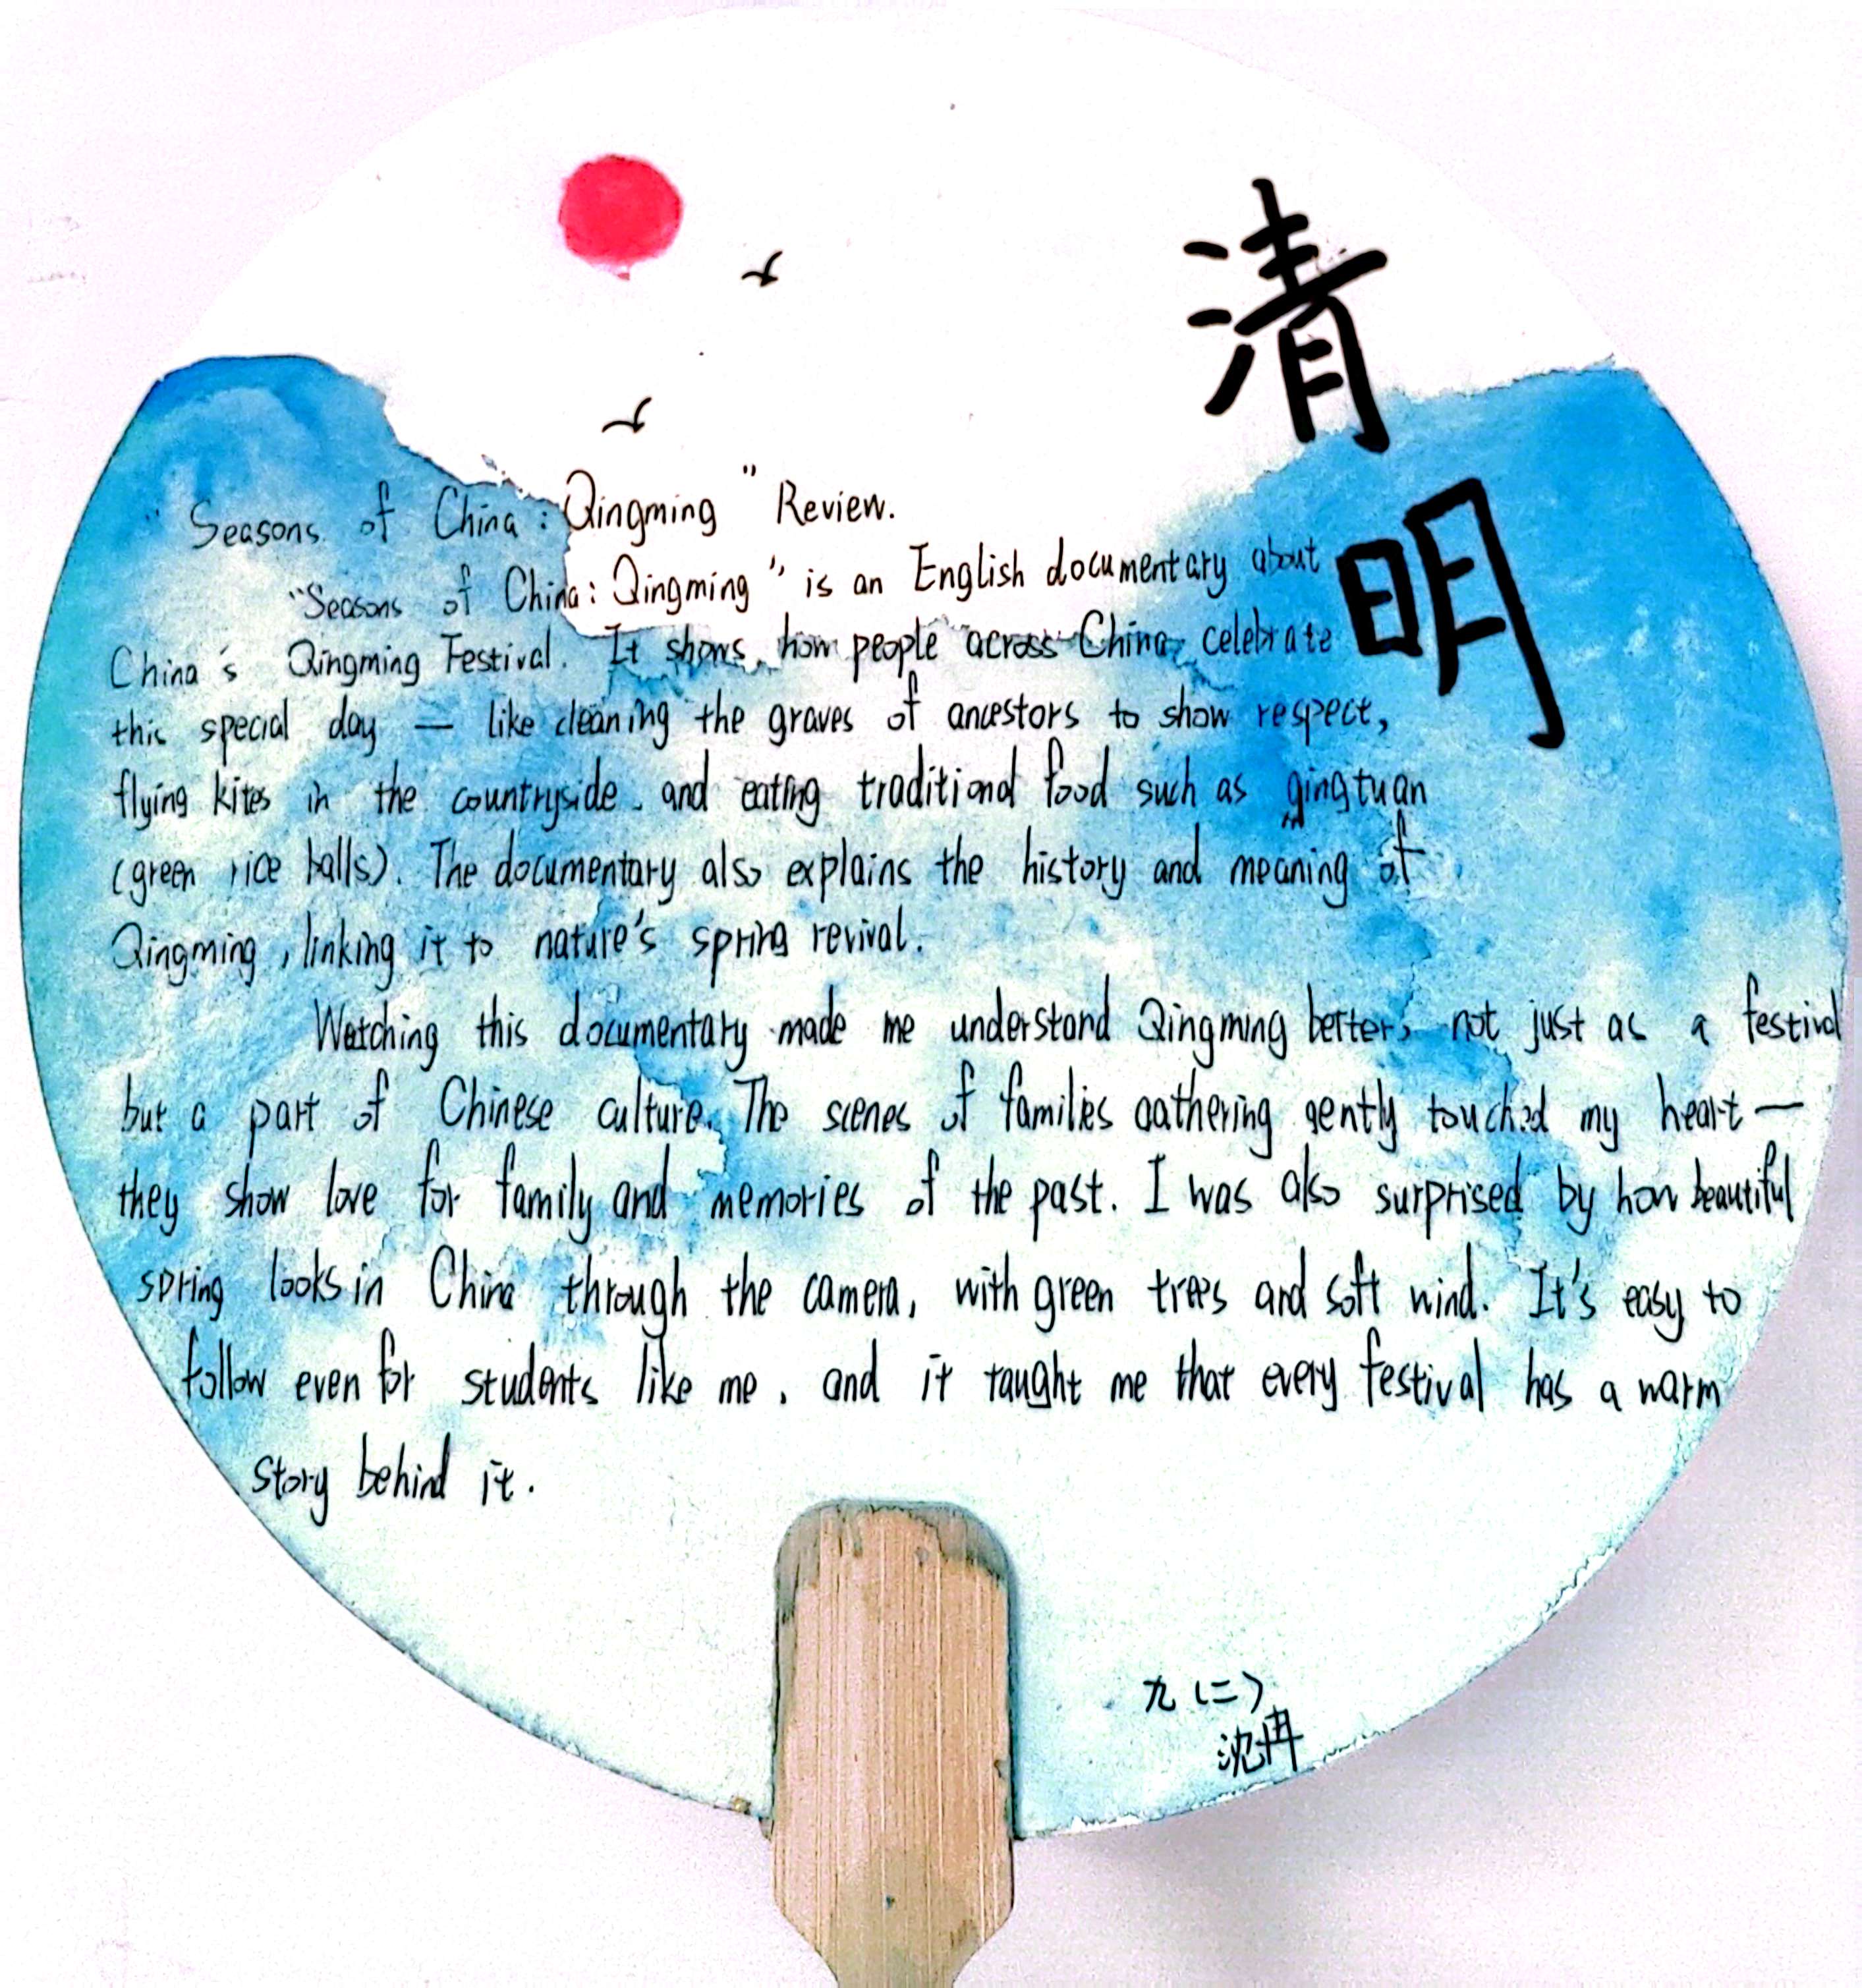 清
明
"Seasons of China: Qingming" Review.
"Seasons of China: Qingming" is an English documentary about
China's Qingming Festival. It shows how people across China celebrate
this special day — like cleaning the graves of ancestors to show respect,
flying kites in the countryside. and eating traditional food such as qingtuan
(green rice balls). The documentary also explains the history and meaning of
Qingming, linking it to nature's spring revival.
Watching this documentary made me understand Qingming better, not just as a festival
but a part of Chinese culture. The scenes of families gathering gently touched my heart —
they show love for family and memories of the past. I was also surprised by how beautiful
spring looks in China through the camera, with green trees and soft wind. It's easy to
follow even for students like me, and it taught me that every festival has a warm
story behind it.
九(二)
沈冉